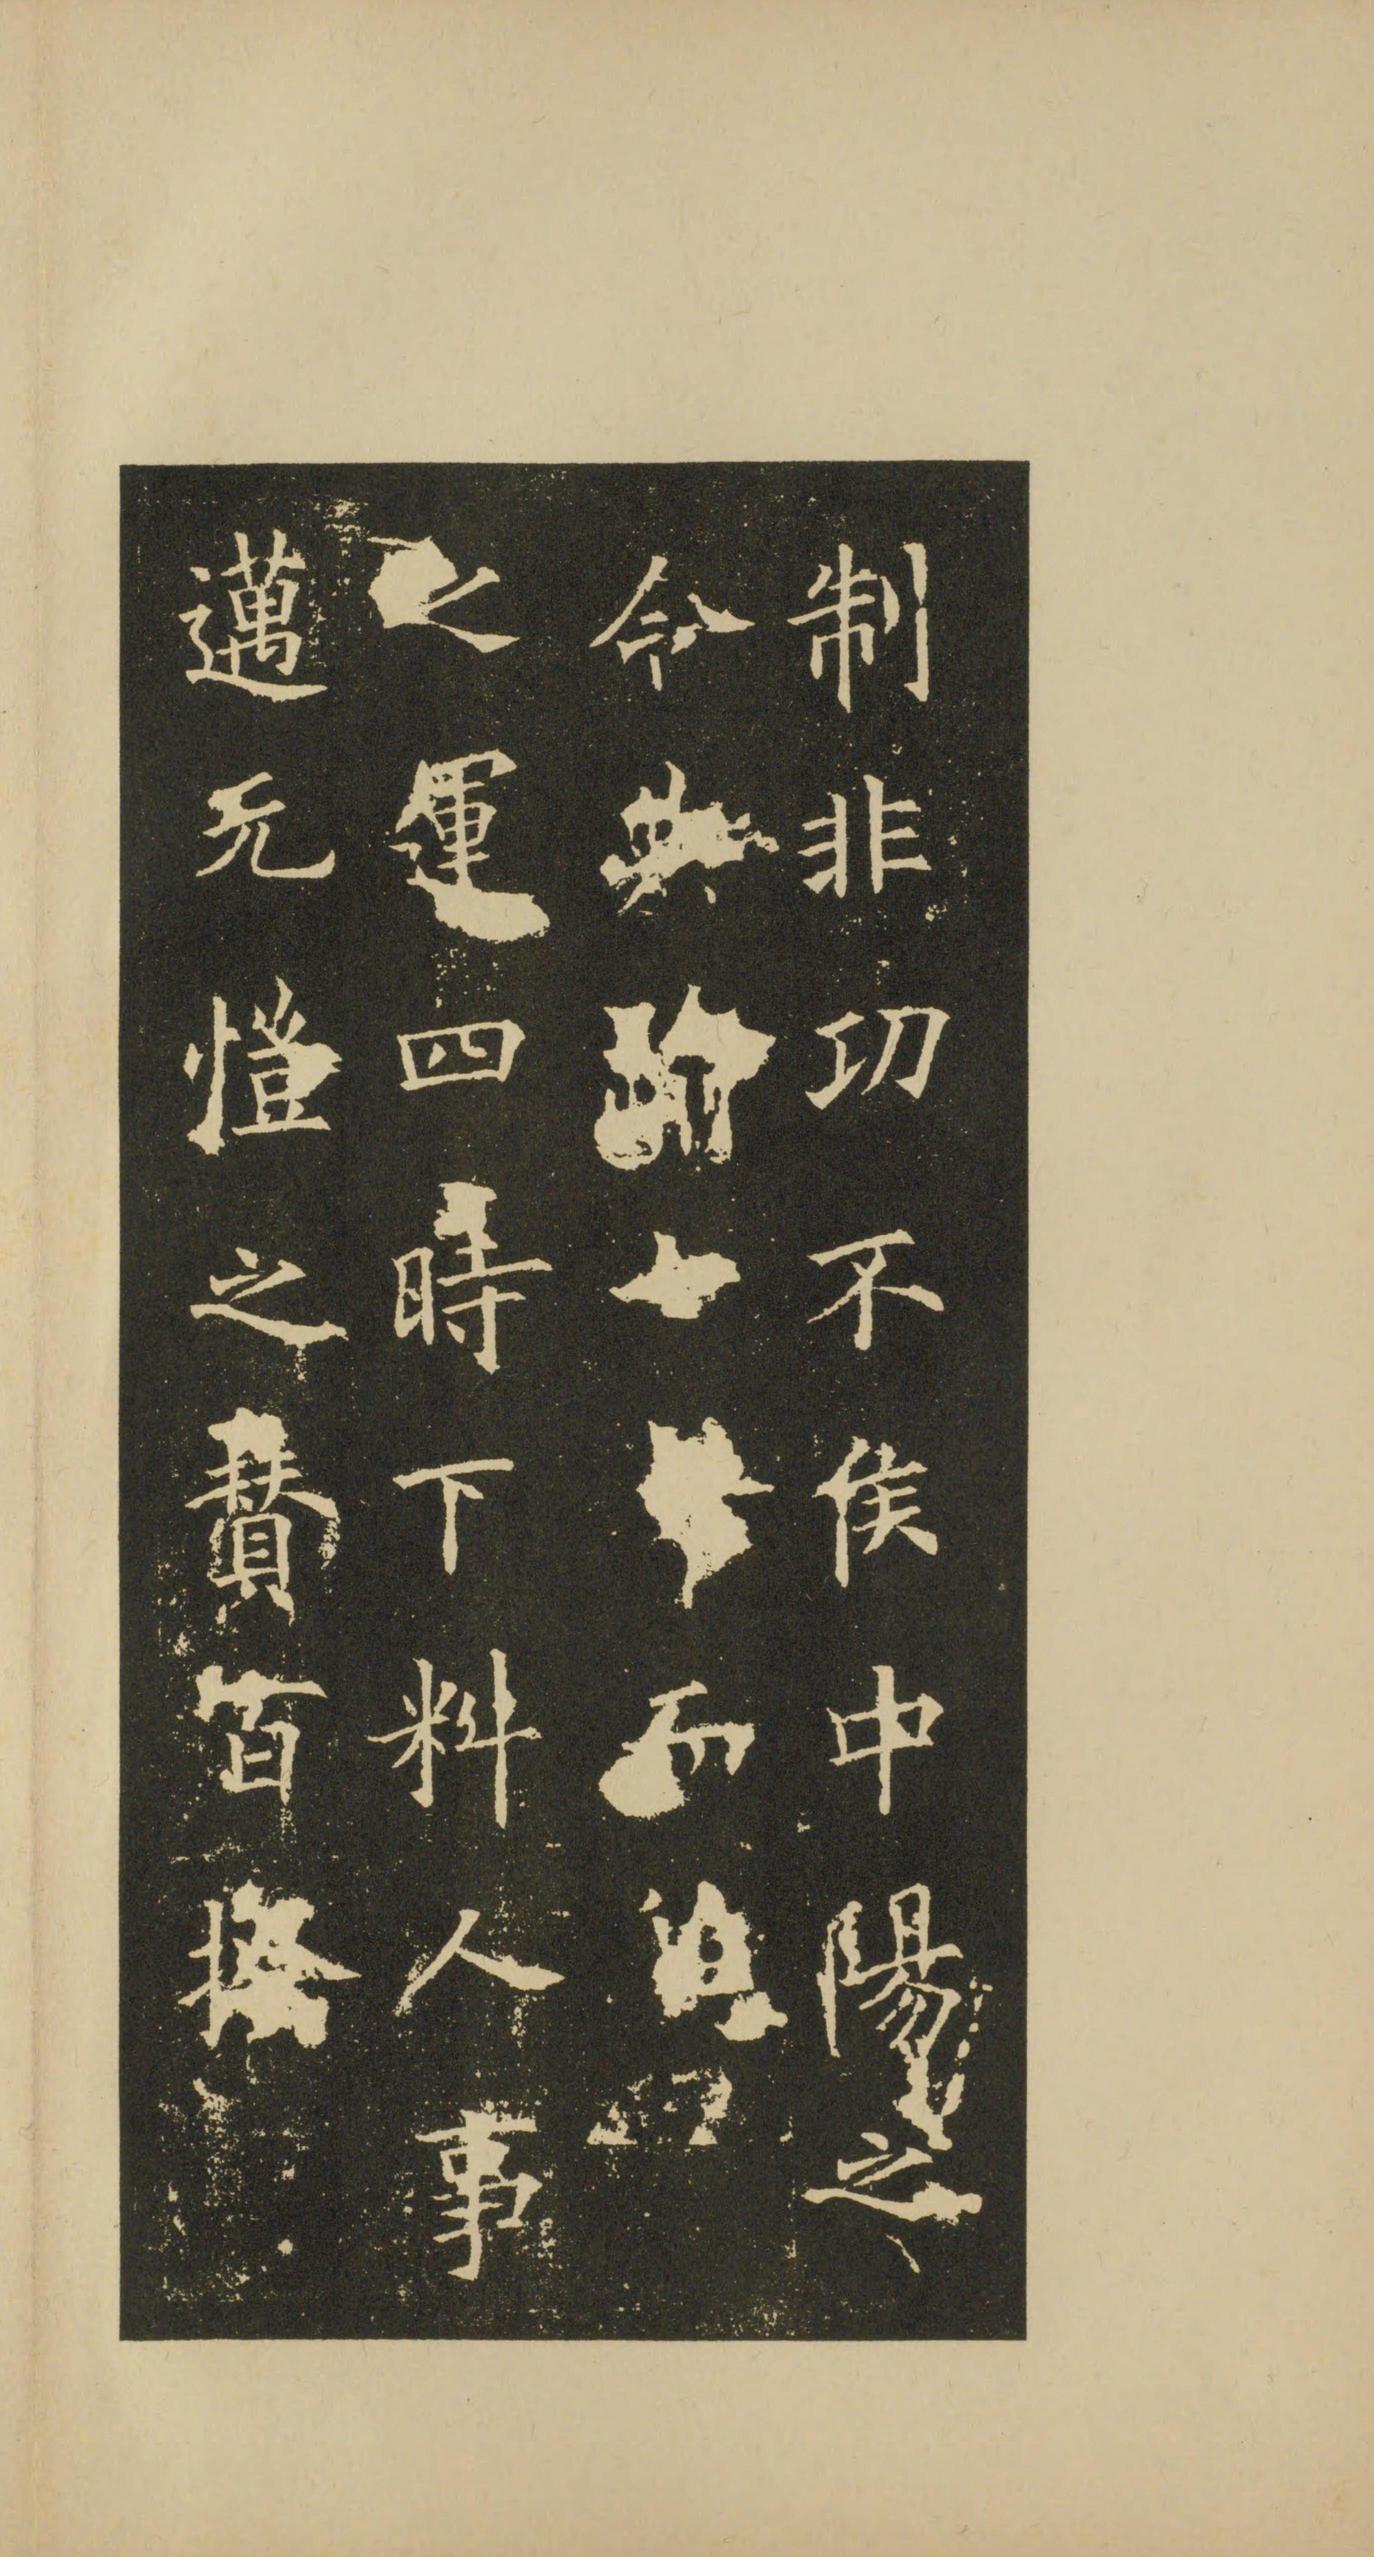 制非㓛不侯中陽之
令典
之運四時下料人事
邁元愷之賛百揆